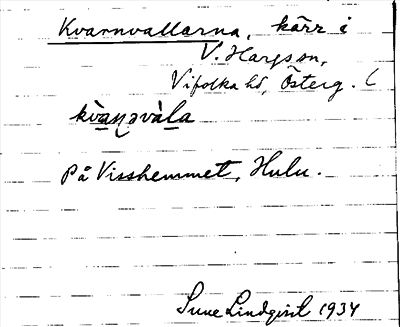 Kvarnvallarna, kärr i
V. Hargs sn,
Vifolka hd, Österg. (
kvàṇəvàla
På Visshemmet, Hulu.
Sune Lindqvist 1934